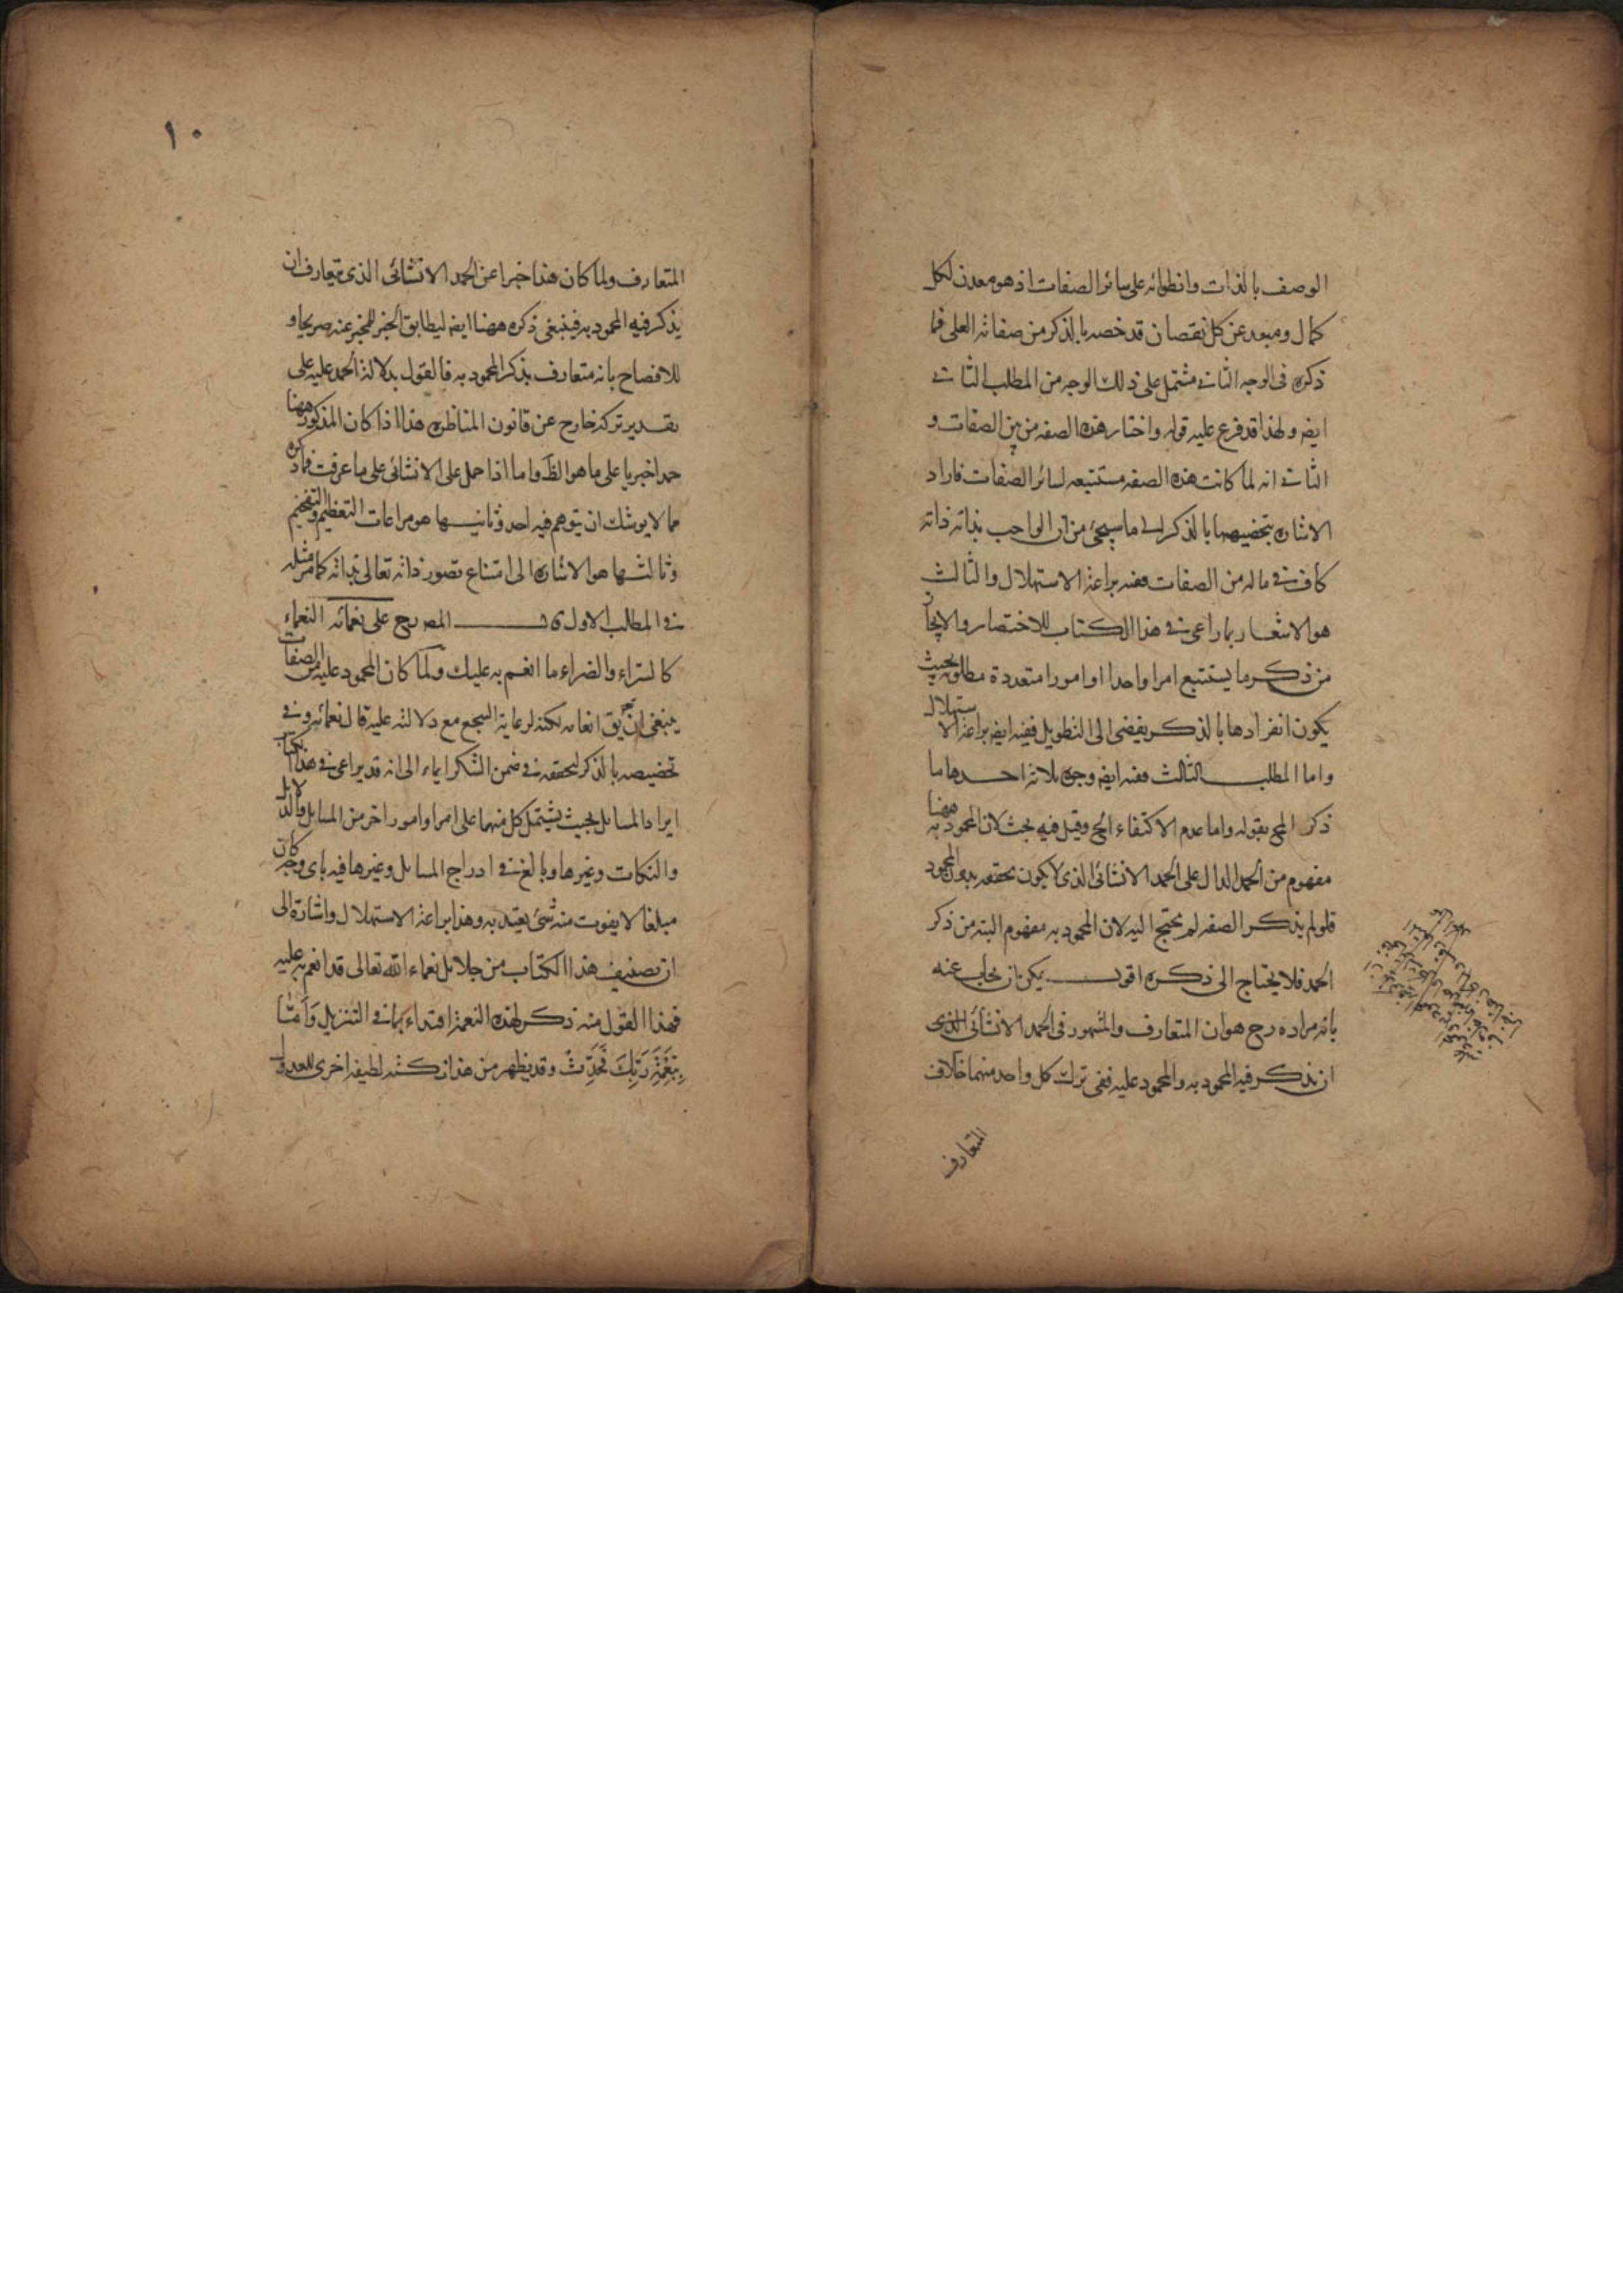 الوصف بالذات وانطوائه على سائر الصفات اذ هو معدن لكل
كمال ومبعد عن كل نقصان قد خصه بالذكر من صفاته العلى فما
ذكره فى الوجه الثانى مشتمل على ذلك الوجه من المطلب الثانى
ايضا ولهذا قد فرع عليه قوله واختار هذه الصفه من بين الصفات و
الثانى انه لما كانت هذه الصفه مستتبعه لسائر الصفات فاراد
الاشاره بتخصيصها بالذكر الى ما سيجئ من ان الواجب بذاته ذاته
كاف فى ماله من الصفات ففيه براعة الاستهلال والثالث
هو الاشعار بما راعى فى هذا الكتاب للاختصار والايجاز
من ذكر ما يستتبع امرا واحدا او امورا متعددة مطلوبه بحيث
يكون انفرادها بالذكر يفضى الى التطويل ففيه ايضا براعة الاستهلال
واما المطلب الثالث ففيه ايضا وجوه ثلاثة احدها ما
ذكر المح بقوله واما عدم الاكتفاء الخ وقيل فيه بحث لان المحمود به ههنا
مفهوم من الحمد الدال على الحمد الانشائى الذى لا يكون تحققه بدون المحمود
فلو لم يذكر الصفه لم يحتج اليه لان المحمود به مفهوم البته من ذكر
الحمد فلا يحتاج الى ذكره اقول يمكن ان يجاب عنه
بانه مراده رح هو ان المتعارف والمشهور فى الحمد الانشائى الذى
ان يذكر فيه المحمود به والمحمود عليه ففى ترك كل واحد منهما خلاف
المتعارف
١٠
المتعارف ولما كان هذا خبرا عن الحمد الانشائى الذى يتعارف ان
يذكر فيه المحمود به فينبغى ذكره ههنا ايضا ليطابق الخبر للمخبر عنه صريحا و
للافصاح بانه متعارف بذكر المحمود به فالقول بدلالة الحمد عليه على
تقدير تركه خارج عن قانون المناظره هذا اذا كان المذكور ههنا
حمدا خبريا على ما هو الظ واما اذا حمل على الانشائى على ما عرفت فما ذكره
مما لا يوشك ان يتوهم فيه احد وثانيها هو مراعات التعظيم والتفخيم
وثالثها هو الاشارة الى امتناع تصور ذاته تعالى بذاته كما مر مثله
فى المطلب الاول قـال المصرح على نعمائه النعماء
كالسراء والضراء ما انعم به عليك ولما كان المحمود عليه من الصفات
ينبغى ان يق انعامه لكنه لرعاية السجع مع دلالته عليه قال نعمائه وفى
تخصيصه بالذكر لتحققه فى ضمن الشكر ايماء الى انه قد يراعى فى هذا الكتاب
ايراد المسايل بحيث يشتمل كل منها على امر او امور اخر من المسايل والدلايل
والنكات وغيرها وبالغ فى ادراج المسايل وغيرها فيه باى وجه كان
مبلغا لا يفوت منه شئ يعتد به وهذا براعة الاستهلال واشارة الى
ان تصنيف هذا الكتاب من جلايل نعماء الله تعالى قد انعم به عليه
فهذا القول منه ذكر لهذه النعمة اقتداء بما فى التنزيل وَاَمَّا
بِنِعْمَةِ رَبِّكَ فَحَدِّثْ وقد يظهر من هذا نكتة لطيفه اخرى للعدول